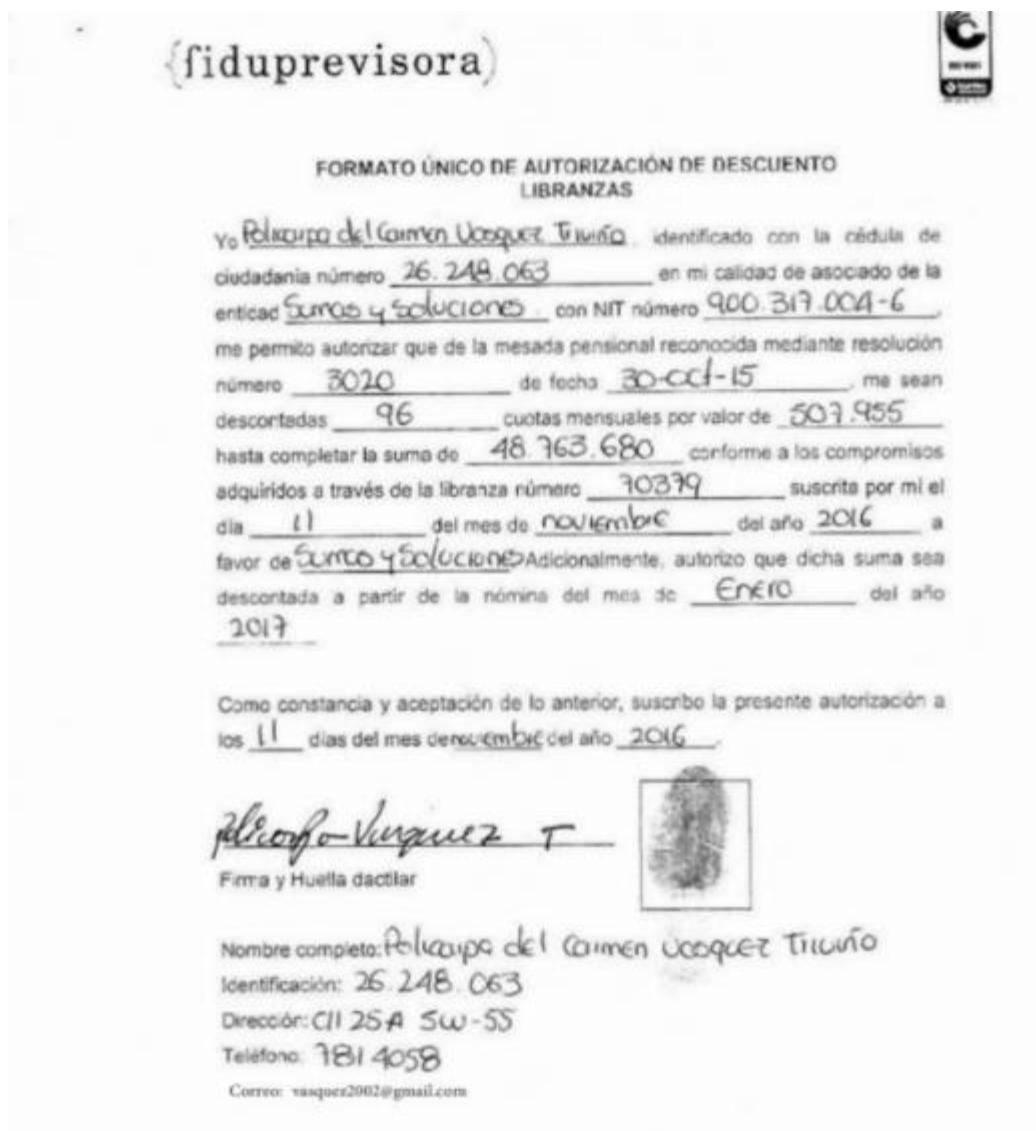 {fiduprevisora}
FORMATO ÚNICO DE AUTORIZACIÓN DE DESCUENTO
LIBRANZAS
Yo Policarpa del Carmen Vasquez Triviño identificado con la cédula de
ciudadania número 26.248.063 en mi calidad de asociado de la
entidad Sumas y Soluciones con NIT número 900.317.004-6,
me permito autorizar que de la mesada pensional reconocida mediante resolución
número 3020 de fecha 30-oct-15, me sean
descontadas 96 cuotas mensuales por valor de 507.955
hasta completar la suma de 48.763.680 conforme a los compromisos
adquiridos a través de la libranza número 70379 suscrita por mi el
día 11 del mes de noviembre del año 2016 a
favor de Sumas y Soluciones Adicionalmente, autorizo que dicha suma sea
descontada a partir de la nómina del mes de Enero del año
2017
Como constancia y aceptación de lo anterior, suscribo la presente autorización a
los 11 días del mes de noviembre del año 2016.
Policarpa Vasquez T
Firma y Huella dactilar
Nombre completo: Policarpa del Carmen Vasquez Triviño
Identificación: 26.248.063
Dirección: Cll 25A 5W-55
Teléfono: 7814058
Correo: vasquez2002@gmail.com